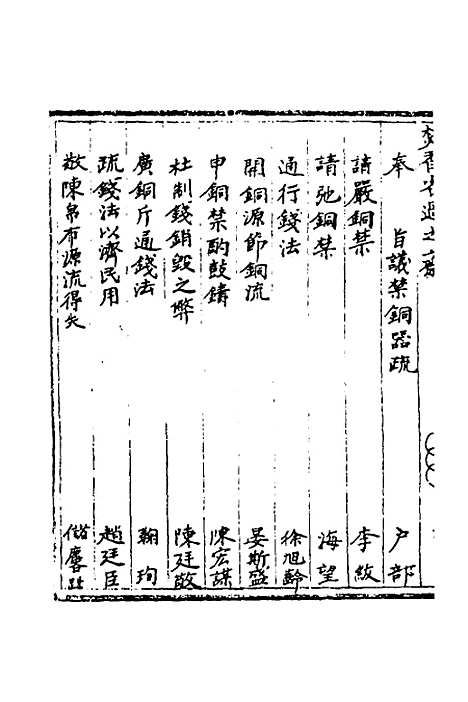 奉　旨議禁銅器疏　戶部
請嚴銅禁　李紱
請弛銅禁　海望
通行錢法　徐旭齡
開銅源節銅流　晏斯盛
申銅禁酌鼓鑄　陳宏謀
杜制錢銷毀之弊　陳廷敬
廣銅斤通錢法　鞠珣
疏錢法以濟民用　趙廷臣
敬陳泉布源流得失　儲麐趾